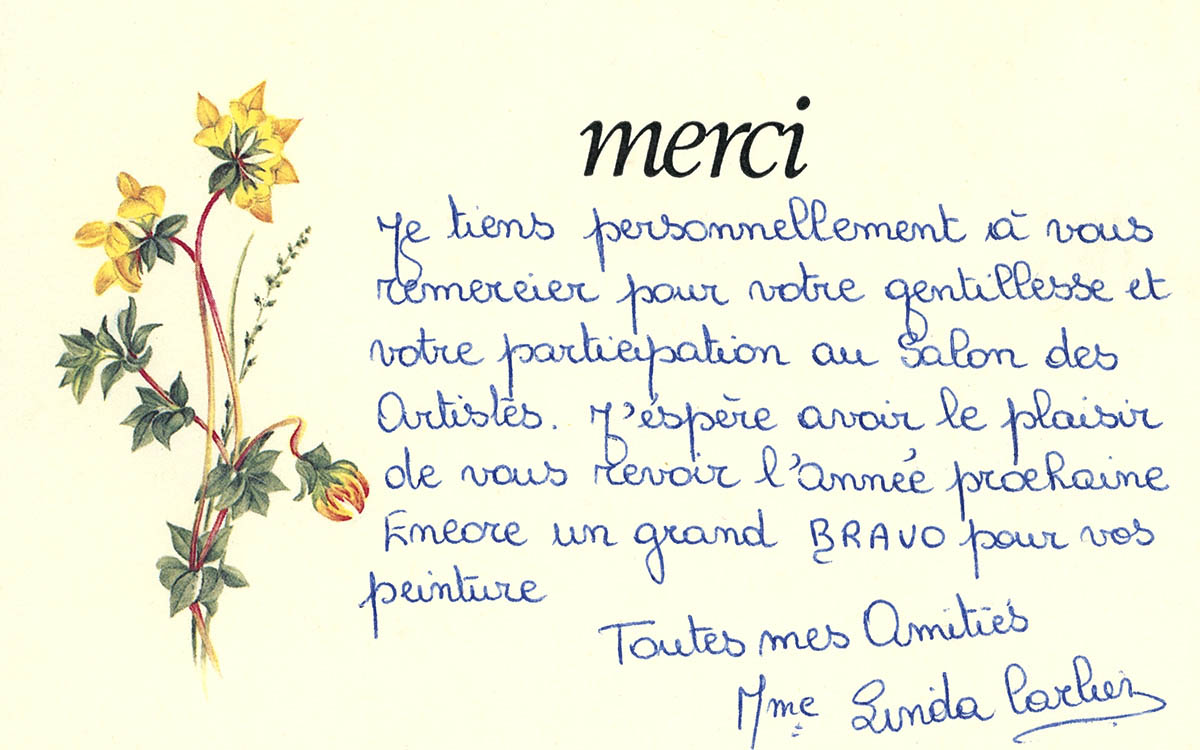 merci
Je tiens personnellement à vous
remercier pour votre gentillesse et
votre participation au Salon des
Artistes. J'éspère avoir le plaisir
de vous revoir l'année prochaine
Encore un grand BRAVO pour vos
peinture
Toutes mes Amitiés
Mme Linda Carlier